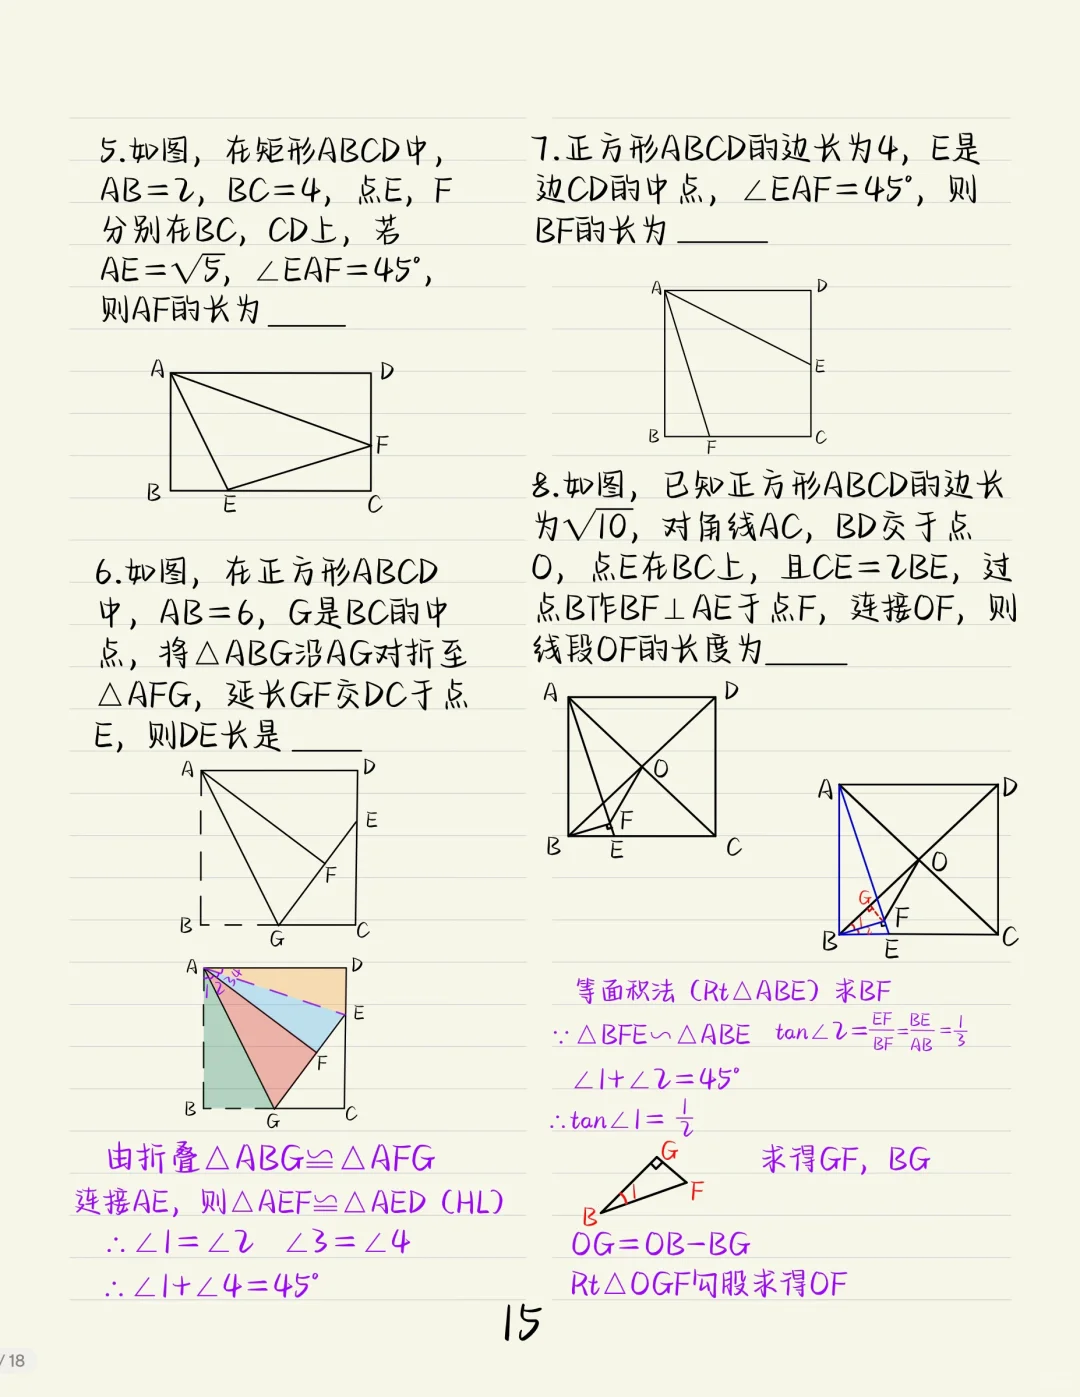 5.如图，在矩形ABCD中，
AB=2，BC=4，点E，F
分别在BC，CD上，若
AE=√5，∠EAF=45°，
则AF的长为______
A
D
F
B
E
C
6.如图，在正方形ABCD
中，AB=6，G是BC的中
点，将△ABG沿AG对折至
△AFG，延长GF交DC于点
E，则DE长是______
A
D
E
F
B
G
C
A
D
1 2 3 4
E
F
B
G
C
由折叠△ABG≌△AFG
连接AE，则△AEF≌△AED（HL）
∴∠1=∠2 ∠3=∠4
∴∠1+∠4=45°
7.正方形ABCD的边长为4，E是
边CD的中点，∠EAF=45°，则
BF的长为______
A
D
E
B
F
C
8.如图，已知正方形ABCD的边长
为√10，对角线AC，BD交于点
O，点E在BC上，且CE=2BE，过
点B作BF⊥AE于点F，连接OF，则
线段OF的长度为______
A
D
O
F
B
E
C
A
D
O
G
F
B
E
C
等面积法（Rt△ABE）求BF
∵△BFE∽△ABE tan∠2=EF/BF=BE/AB=1/3
∠1+∠2=45°
∴tan∠1=1/2
G
1
F
B
求得GF，BG
OG=OB-BG
Rt△OGF勾股求得OF
15
/ 18